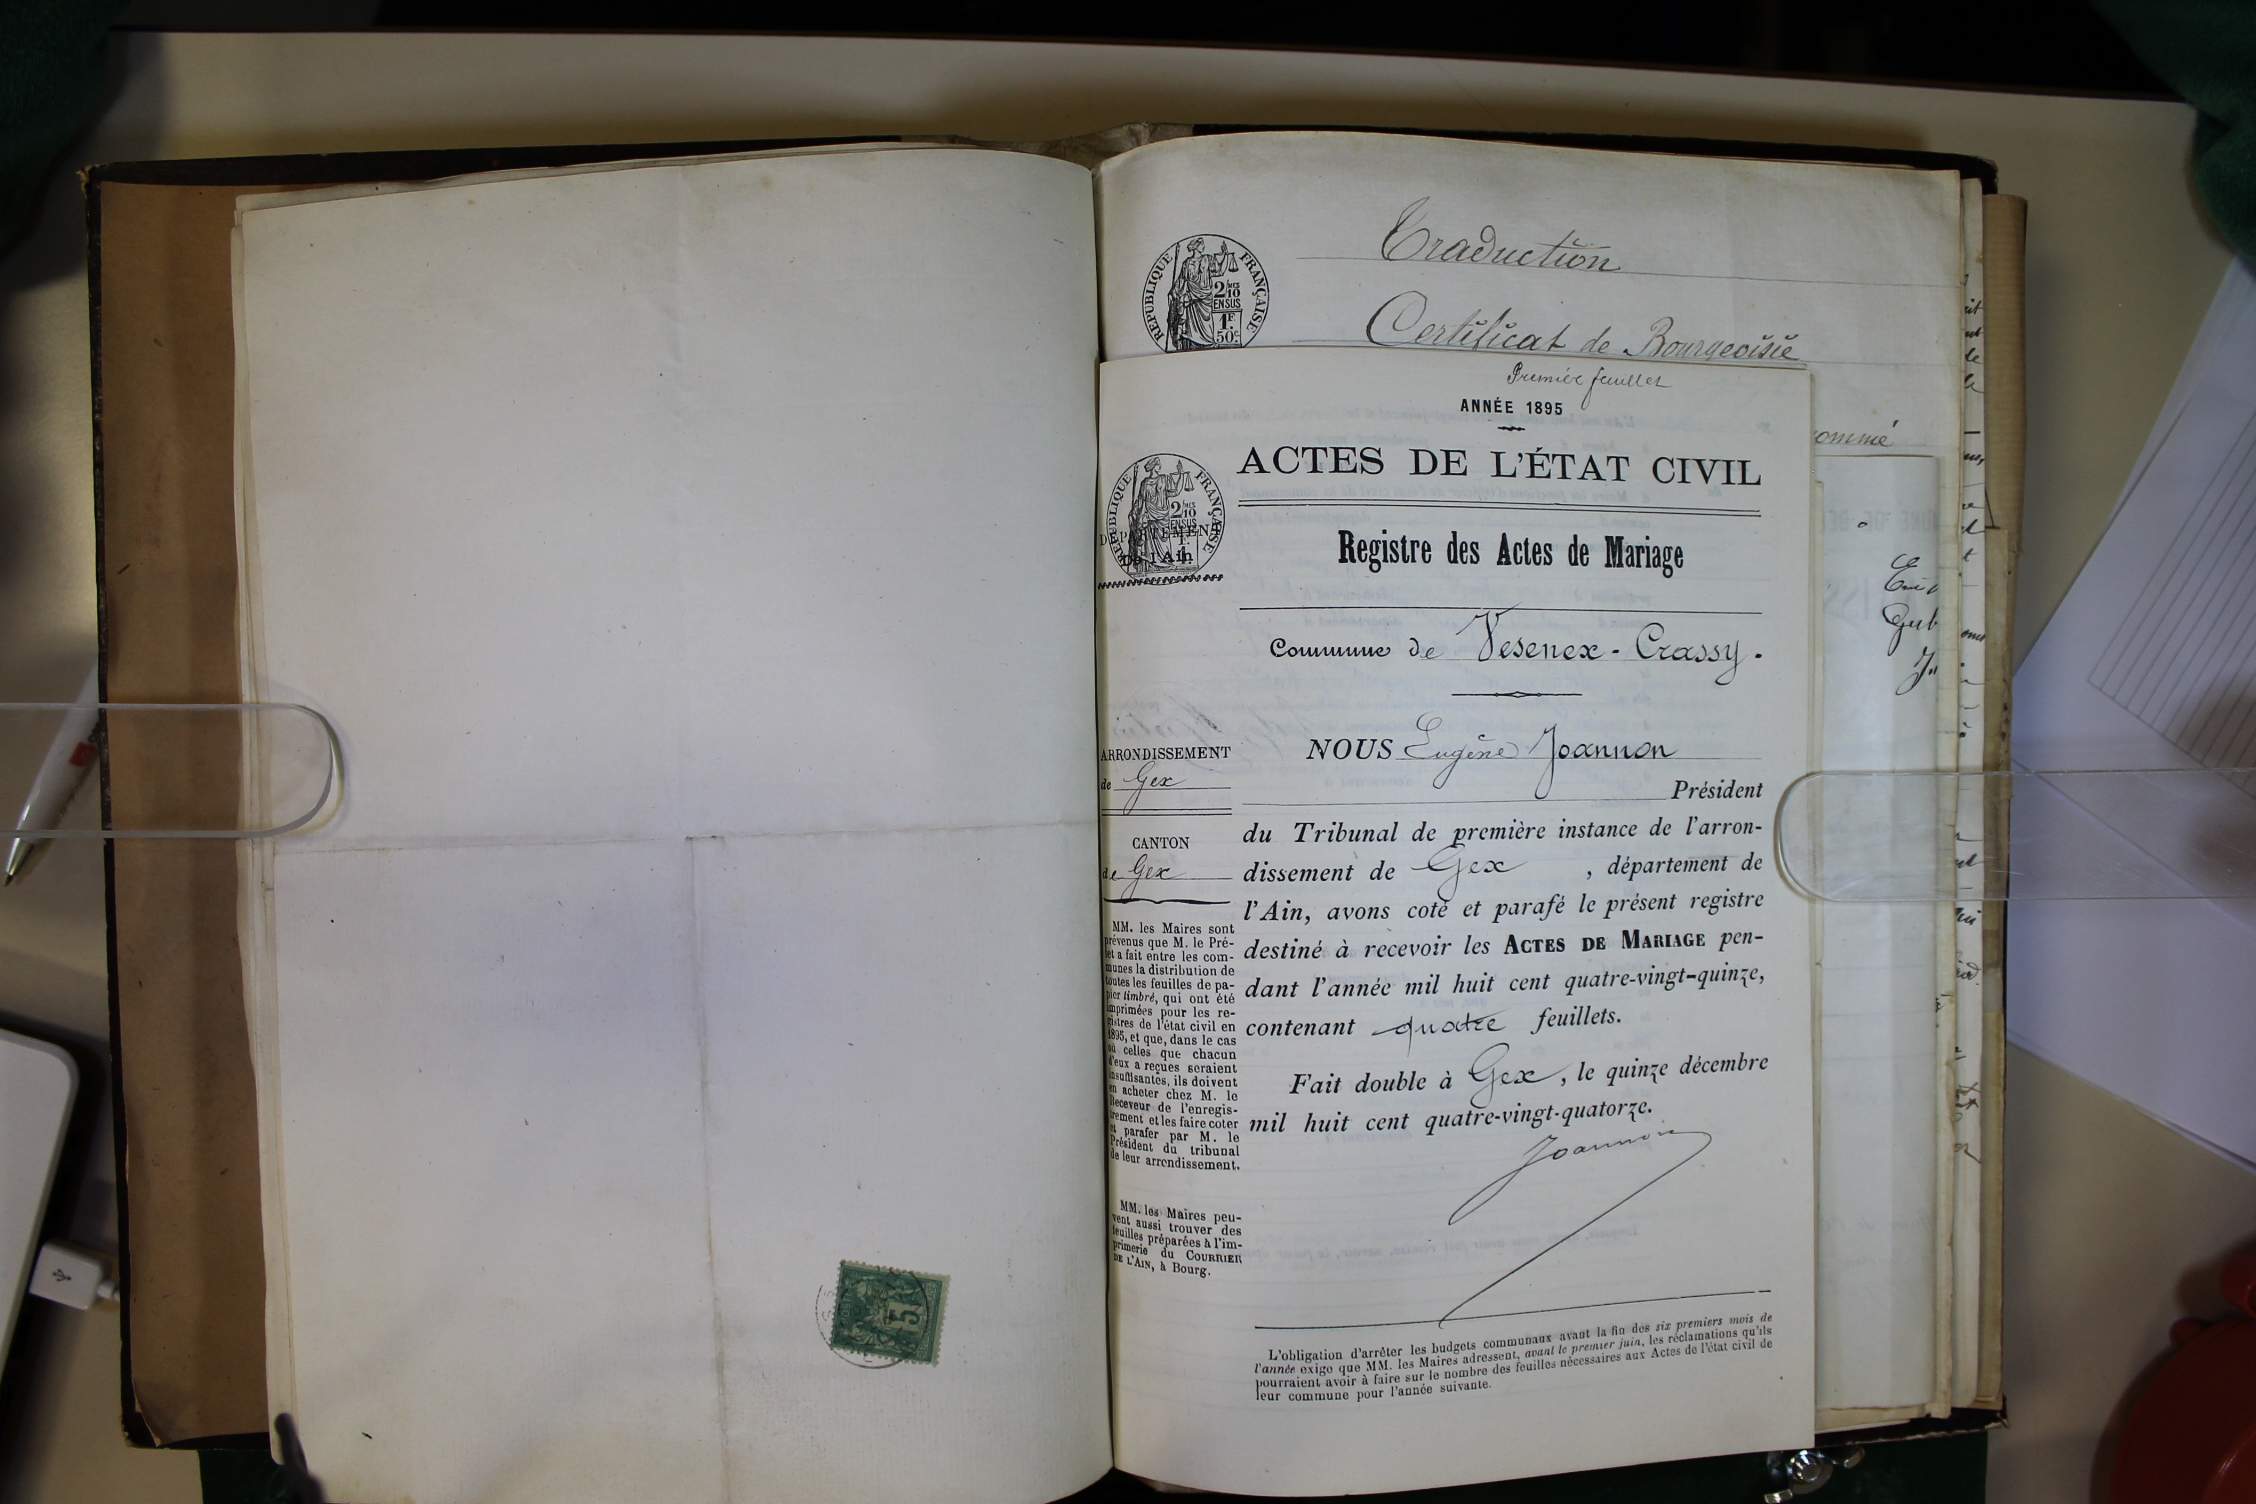 Traduction
RÉPUBLIQUE FRANÇAISE
2/10
EN SUS
1F
50c
Certificat de Bourgeoisie
Première feuillet
ANNÉE 1895
ommé
ACTES DE L'ÉTAT CIVIL
RÉPUBLIQUE FRANÇAISE
2/10
EN SUS
DÉPARTEMENT
De l'Ain
Registre des Actes de Mariage
Commune de Vesenex-Crassy.
ARRONDISSEMENT
de Gex
CANTON
de Gex
MM. les Maires sont
prévenus que M. le Pré-
fet a fait entre les com-
munes la distribution de
toutes les feuilles de pa-
pier timbré, qui ont été
imprimées pour les re-
gistres de l'état civil en
1895, et que, dans le cas
où celles que chacun
d'eux a reçues seraient
insuffisantes, ils doivent
en acheter chez M. le
Receveur de l'enregis-
trement et les faire coter
et parafer par M. le
Président du tribunal
de leur arrondissement.
MM. les Maires peu-
vent aussi trouver des
feuilles préparées à l'im-
primerie du COURRIER
DE L'AIN, à Bourg.
NOUS Eugène Joannon
Président
du Tribunal de première instance de l'arron-
dissement de Gex, département de
l'Ain, avons coté et parafé le présent registre
destiné à recevoir les ACTES DE MARIAGE pen-
dant l'année mil huit cent quatre-vingt-quinze,
contenant quatre feuillets.
Fait double à Gex, le quinze décembre
mil huit cent quatre-vingt-quatorze.
Joannon
L'obligation d'arrêter les budgets communaux avant la fin des six premiers mois de
l'année exige que MM. les Maires adressent, avant le premier juin, les réclamations qu'ils
pourraient avoir à faire sur le nombre des feuilles nécessaires aux Actes de l'état civil de
leur commune pour l'année suivante.
5